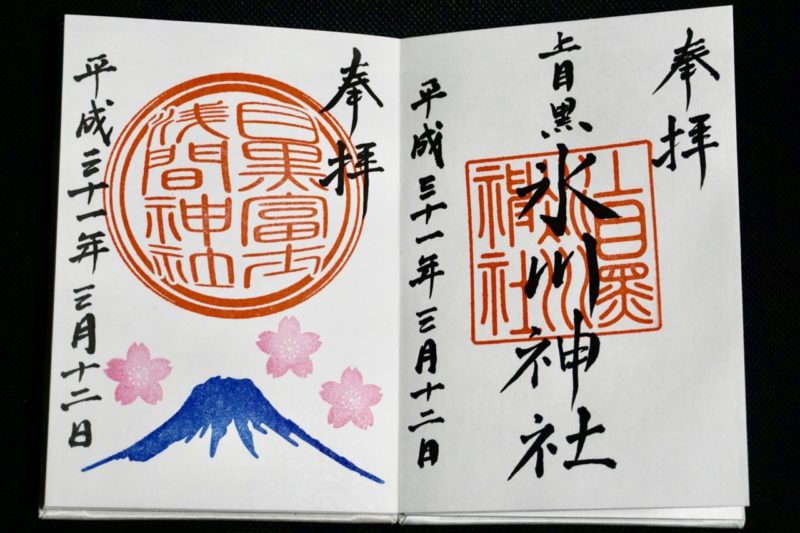 奉拝
上目黒氷川神社
上目黒
氷川
神社
平成三十一年三月十二日
奉拝
目黒富士
浅間神社
平成三十一年三月十二日